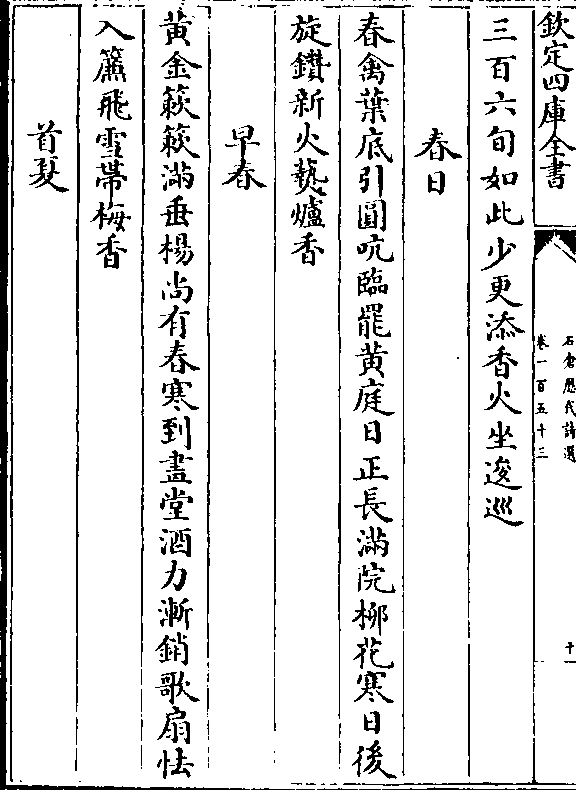 欽定四庫全書
石倉歷代詩選
卷一百五十三
三百六旬如此少更添香火坐逡巡
春日
春禽葉底引圓吭臨罷黄庭日正長滿院柳花寒日後
旋鑽新火爇爐香
早春
黄金簌簌滿垂楊尚有春寒到畫堂酒力漸銷歌扇怯
入簾飛雪帶梅香
首夏